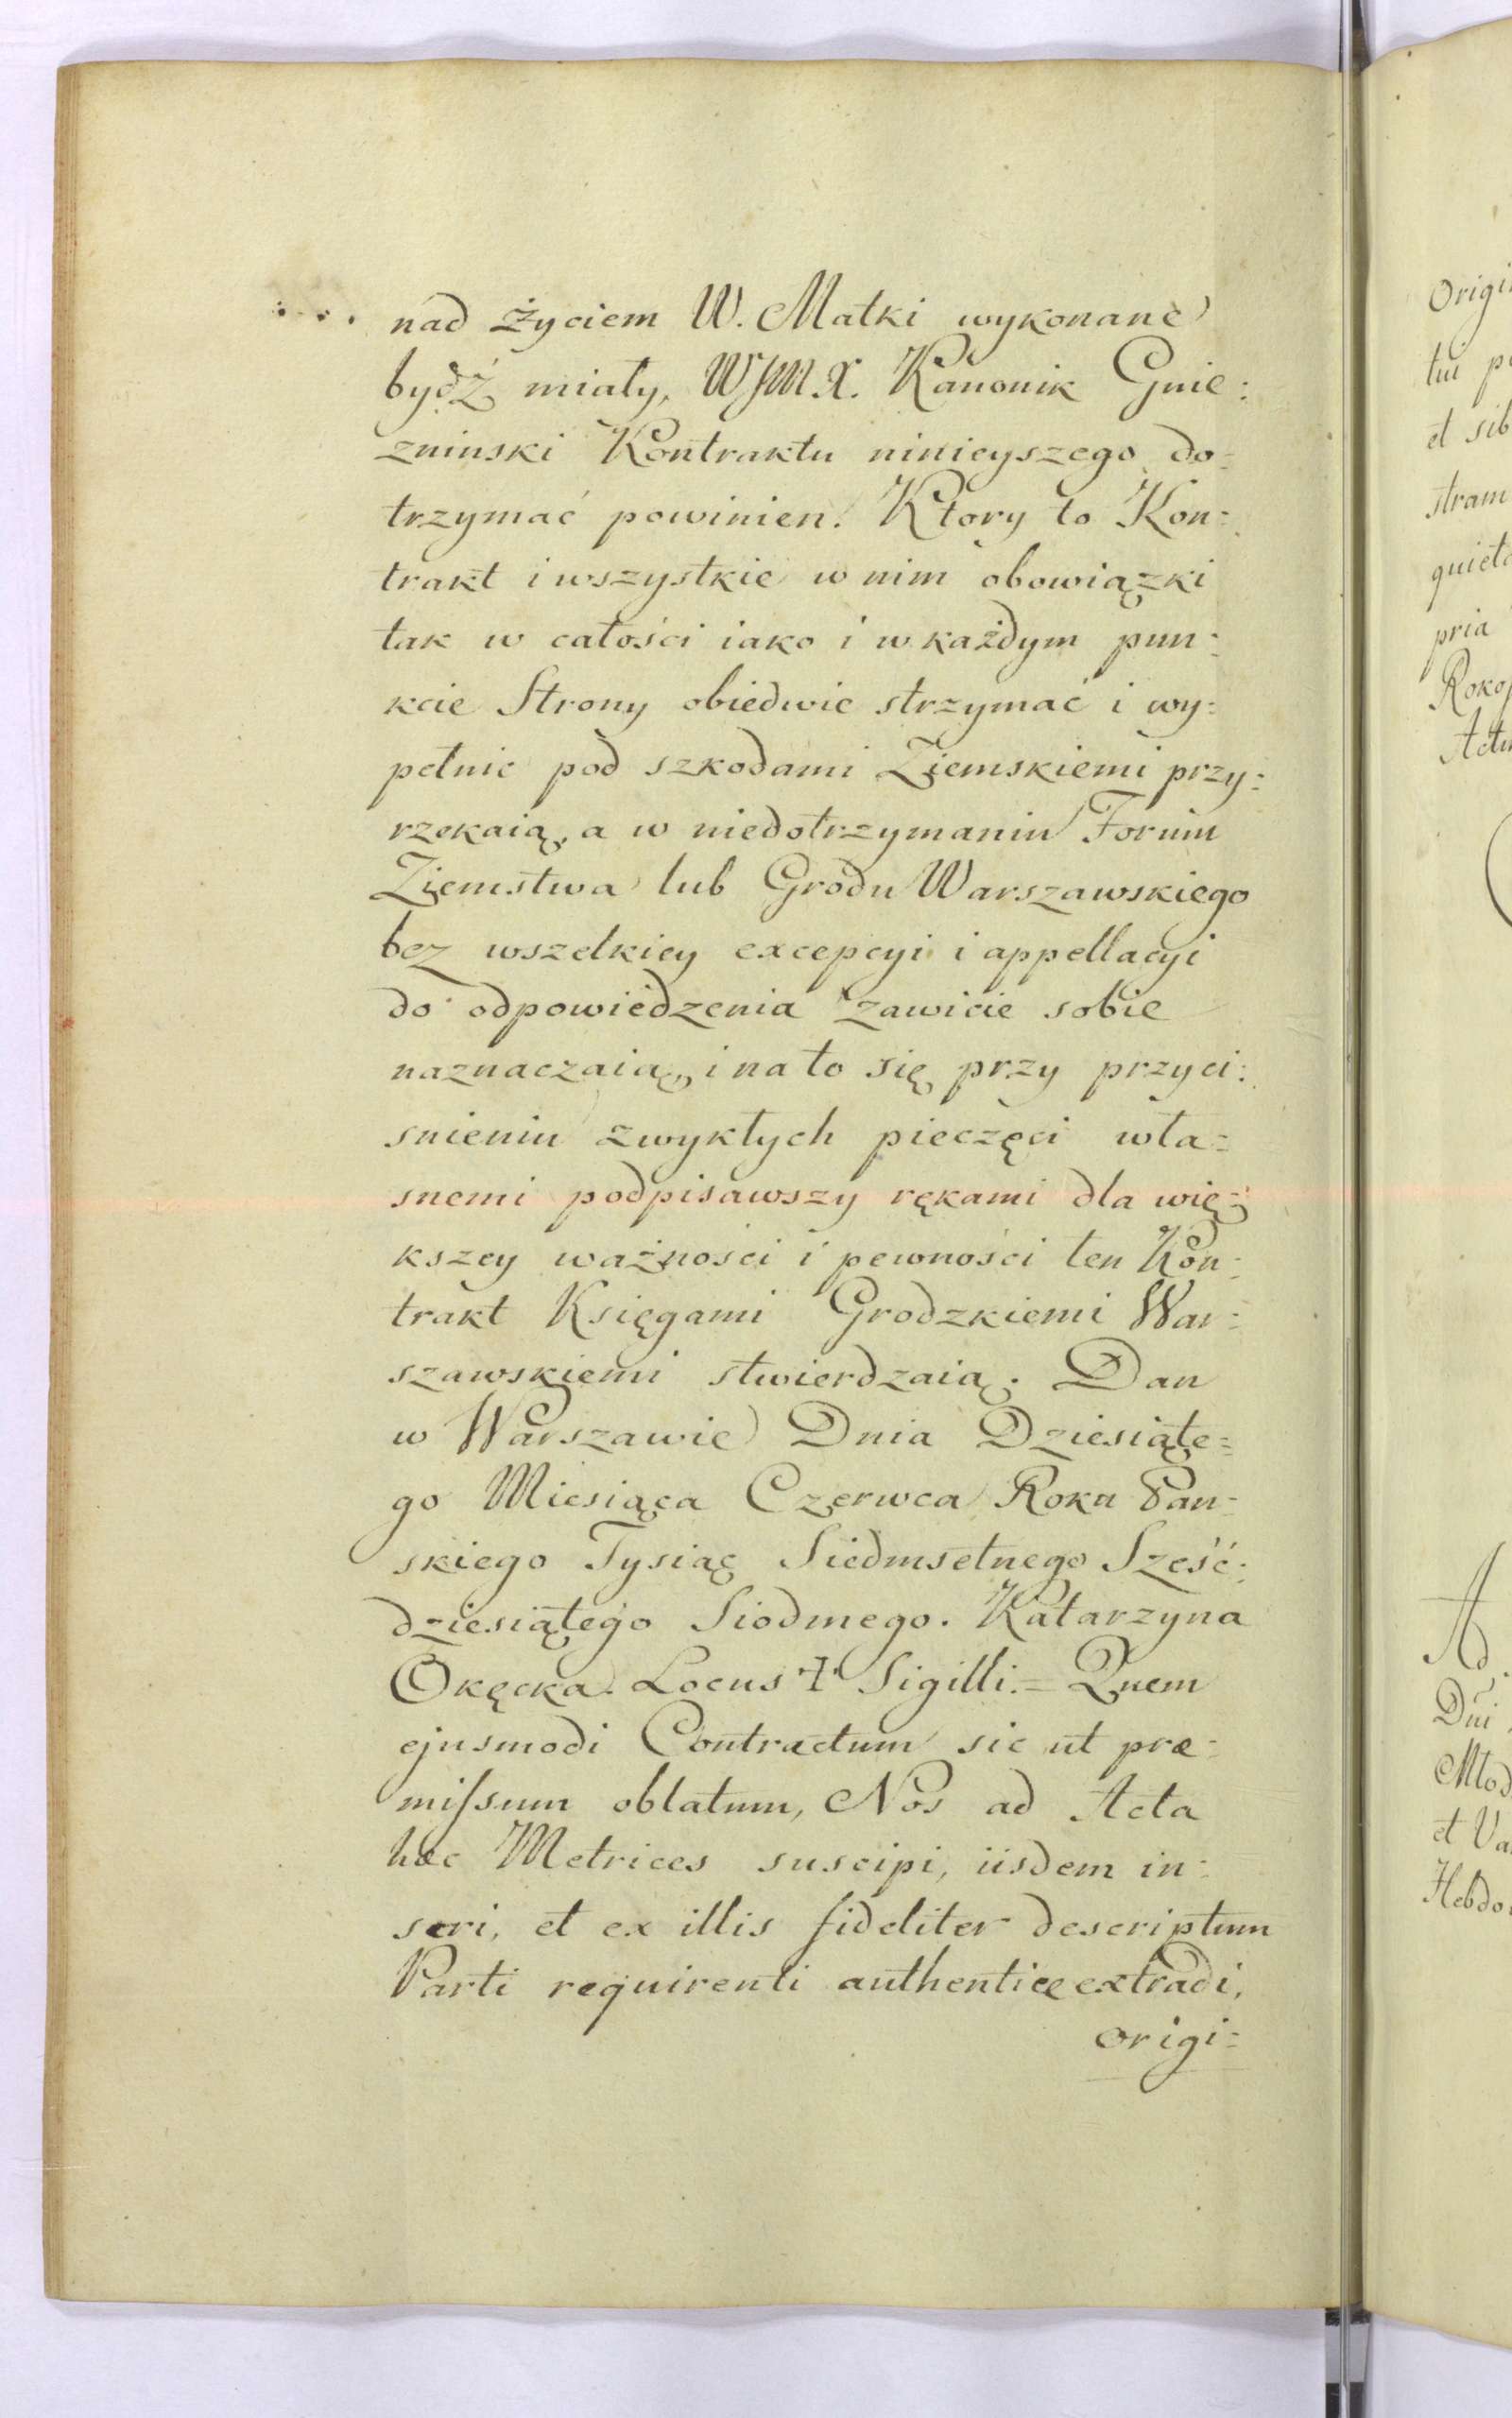 nad życiem W. Matki wykonane
bydź miały, WJM.X. Kanonik Gnie:
zninski Kontraktu ninieyszego do:
trzymać powinien. Ktory to Kon:
trakt i wszystkie w nim obowiązki
tak w całości iako i w każdym pun:
kcie Strony obiedwie strzymać i wy:
pełnic pod szkodami Ziemskiemi przy:
rzekaią, a w niedotrzymaniu Forum
Ziemstwa lub Grodu Warszawskiego
bez wszelkiey excepcyi i appellacyi
do odpowiedzenia zawicie sobie
naznaczaią, i na to się przy przyci:
snieniu zwykłych pieczęci wła:
snemi podpisawszy rękami dla wię:
kszey ważności i pewności ten Kon:
trakt Księgami Grodzkiemi War:
szawskiemi stwierdzaią. Dan
w Warszawie Dnia Dziesiąte:
go Miesiąca Czerwca Roku Pan:
skiego Tysiąc Siedmsetnego Sześć:
dziesiątego Siodmego. Katarzyna
Okęcka. Locus + Sigilli. = Quem
ejusmodi Contractum sic ut præ:
missum oblatum, Nos ad Acta
hæc Metrices suscipi, iisdem in:
seri, et ex illis fideliter descriptum
Parti requirenti authentice extradi,
origi:
et sib
stram
pria
Dni
et Va